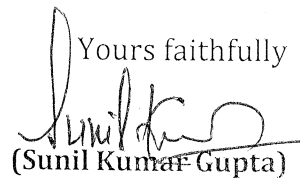 Yours faithfully
Sunil Kumar
(Sunil Kumar Gupta)